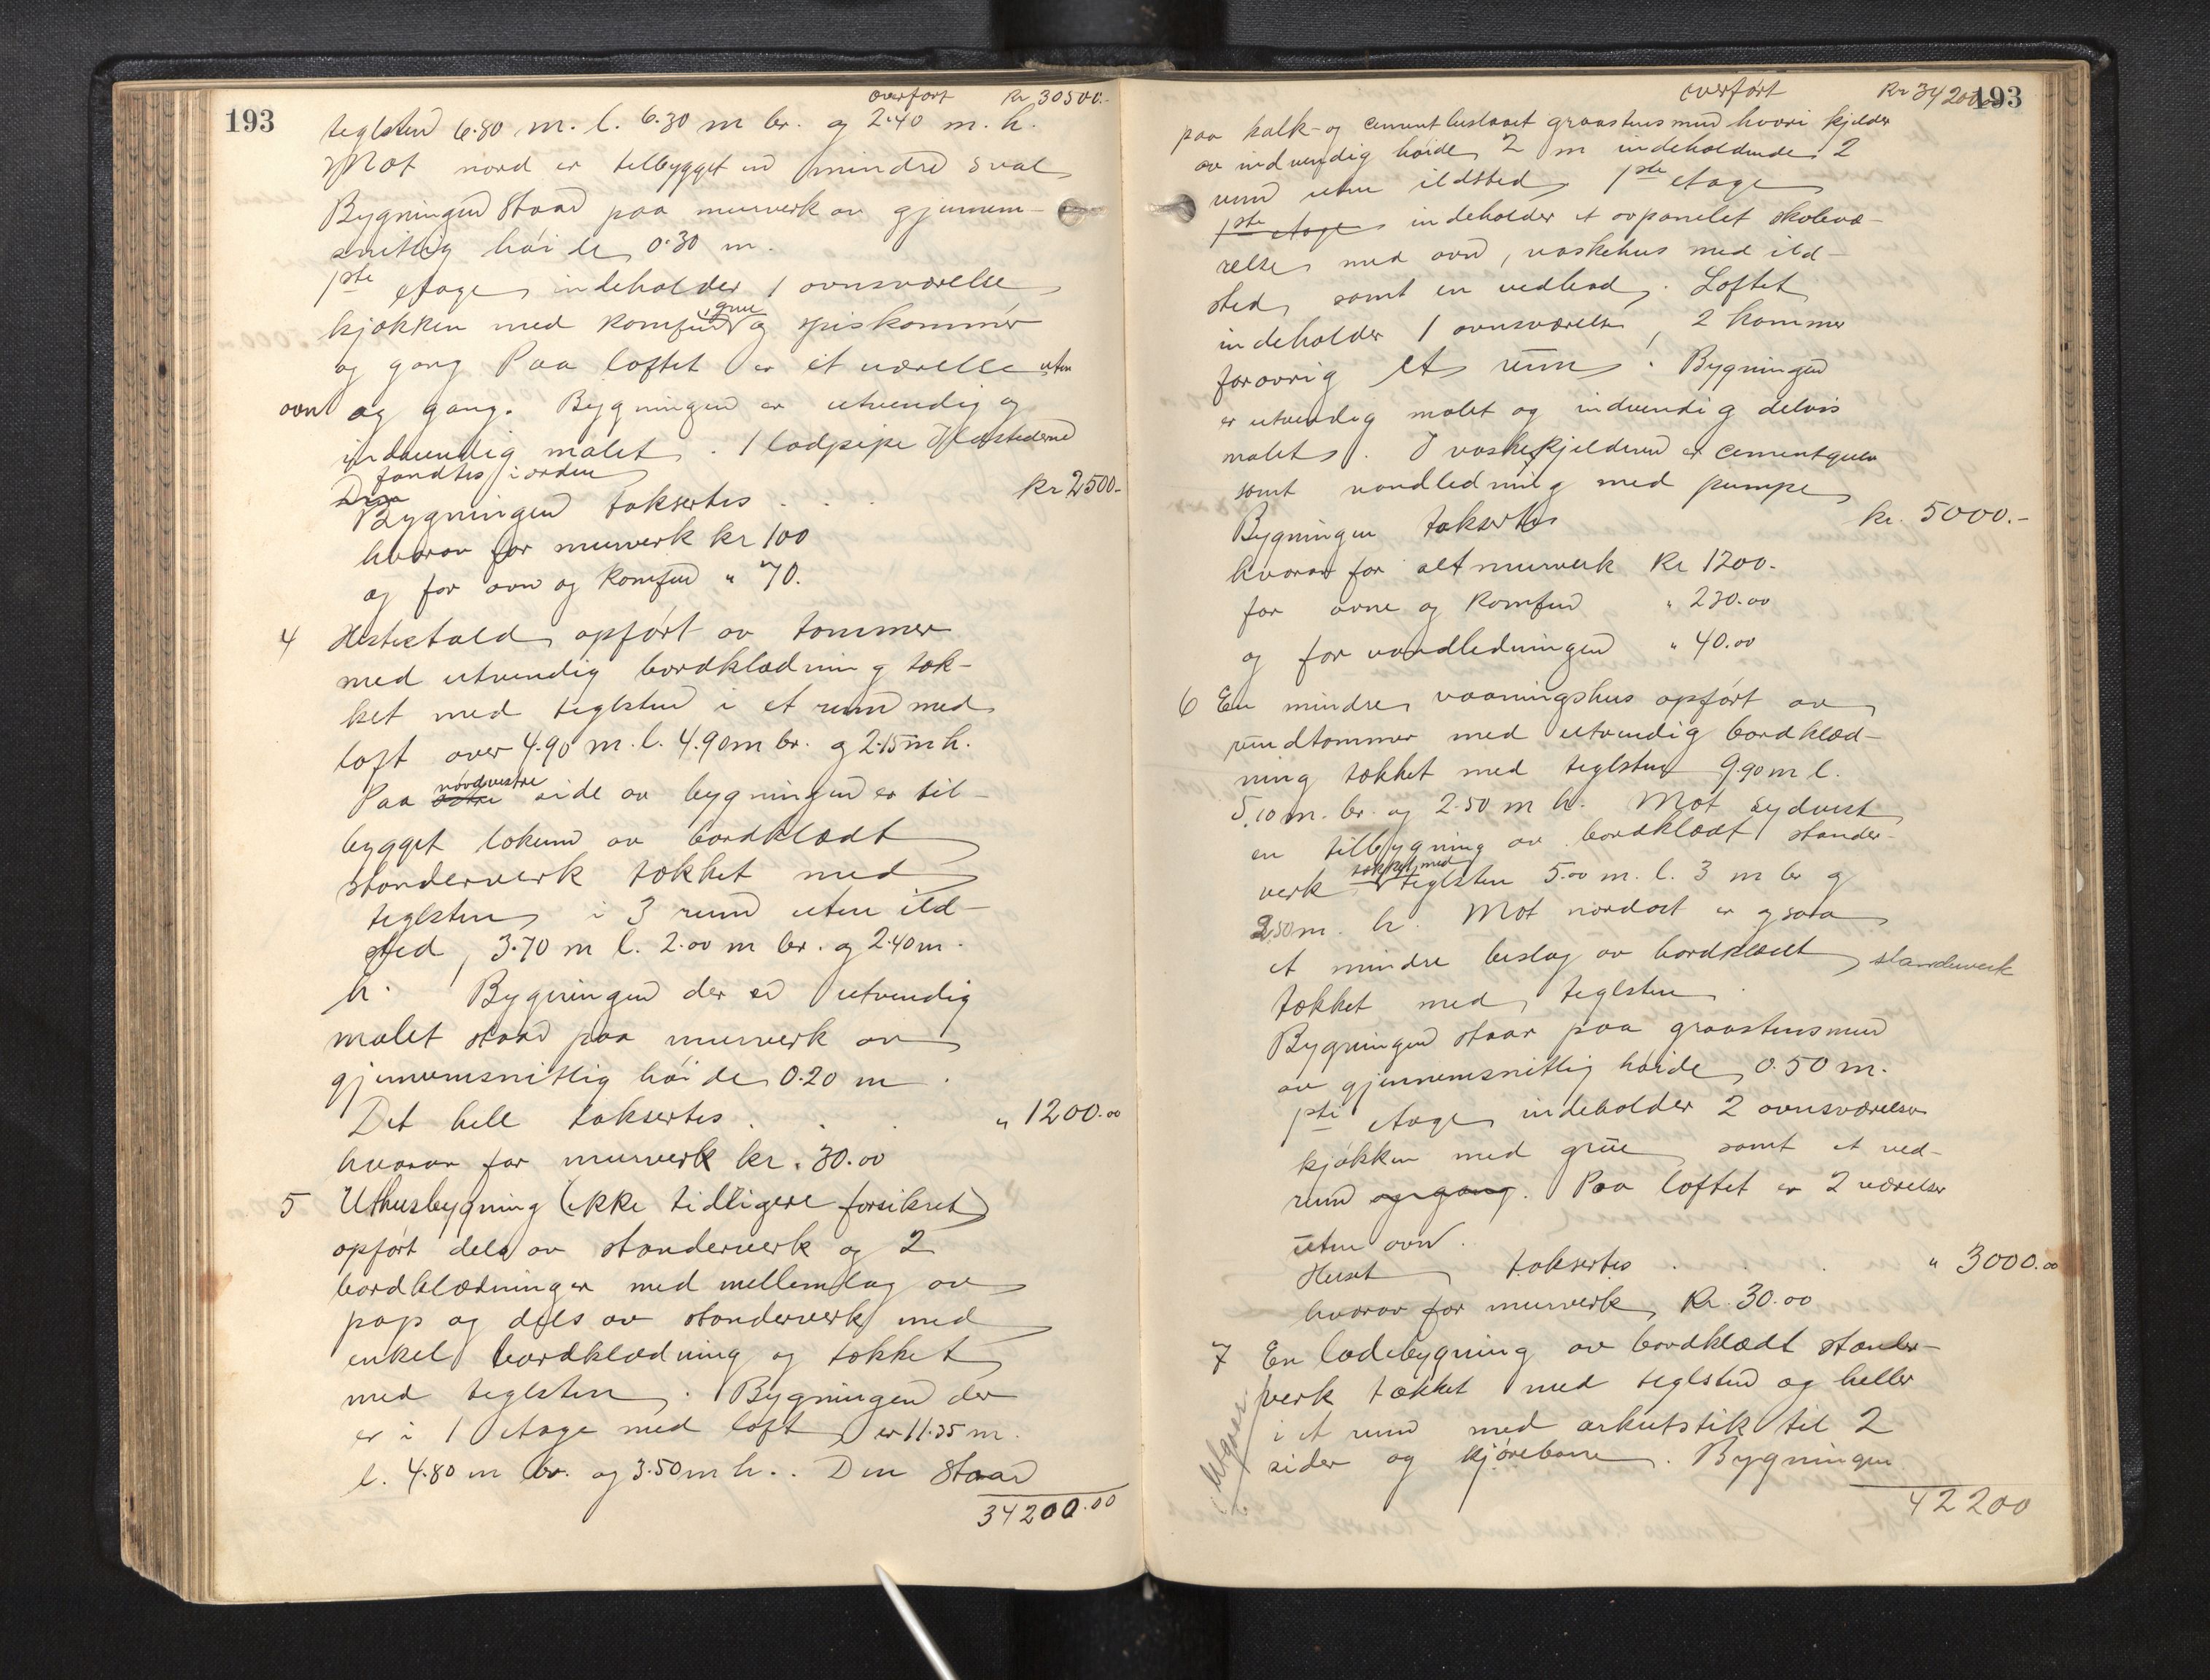 193
overført Kr 30500.-
teglsten 6.80 m. l. 6.30 m br. og 2.40 m. h.
Mot nord er tilbygget en mindre sval
Bygningen staar paa murverk av gjennem-
snitlig høide 0.30 m.
1ste etage indeholder 1 ovnsværelse
kjøkken med komfur, grue og spiskammer
og gang Paa loftet er et værelse uten
ovn og gang. Bygningen er utvendig og
indvendig malet. 1 ladpipe Ildstederne
fandtes i orden
Bygningen taksertes . . . kr 2500.-
hvorav for murverk kr 100
og for ovn og komfur " 70.
4 Hestestald opført av tømmer
med utvendig bordklædning tæk-
ket med teglsten i et rum med
loft over 4.90 m. l. 4.90 m br. og 2.15 m h.
Paa østre nordvestre side av bygningen er til-
bygget lokum av bordklædt
stenderverk tækket med
teglsten i 3 rum uten ild-
sted, 3.70 m l. 2.00 m br. og 2.40 m.
h. Bygningen der er utvendig
malet staar paa murverk av
gjennemsnitlig høide 0.20 m.
Det hele taksertes . . . " 1200.00
hvorav for murverk kr. 30.00
5 Uthusbygning (ikke tidligere forsikret)
opført dels av stenderverk og 2
bordklædninger med mellemlag av
pap og dels av stenderverk med
enkel bordklædning og tækket
med teglsten. Bygningen der
er i 1 etage med loft er 11.35 m.
l. 4.80 m br. og 3.50 m h.. Den staar
34200.00
overført Kr 34200.00
193
paa kalk- og cementbeslaaet graastensmur hvori kjelder
av indvendig høide 2 m indeholdende 2
rum uten ildsted 1ste etage
1ste etage indeholder et avpanelet skolevæ-
relse med ovn, vaskehus med ild-
sted samt en vedbod. Loftet
indeholder 1 ovnsværelse, 2 kammer
forøvrig et rum. Bygningen
er utvendig malet og indvendig delvis
malet. I vaskekjelderen er cementgulv
samt vandledning med pumpe
Bygningen taksertes kr. 5000.-
hvorav for alt murverk Kr 1200.
for ovne og komfur " 230.00
og for vandledningen " 40.00
6 En mindre vaaningshus opført av
rundtømmer med utvendig bordklæd-
ning tækket med teglsten 9.90 m l.
5.10 m. br. og 2.50 m h. Mot sydvest
en tilbygning av bordklædt stender-
verk tækket med teglsten 5.00 m. l. 3 m br og
2.50 m. h. Mot nordøst er ogsaa
et mindre beslag av bordklædt stenderverk
tækket med teglsten.
Bygningen staar paa graastensmur
av gjennemsnitlig høide 0.50 m.
1ste etage indeholder 2 ovnsværelser
kjøkken med grue samt et ved-
rum og gang. Paa loftet er 2 værelser
uten ovn.
Huset taksertes . . . " 3000.00
hvorav for murverk Kr. 30.00
7 En ladebygning av bordklædt stender-
verk tækket med teglsten og heller
i et rum med arkutstik til 2
sider og kjørebane. Bygningen
42200